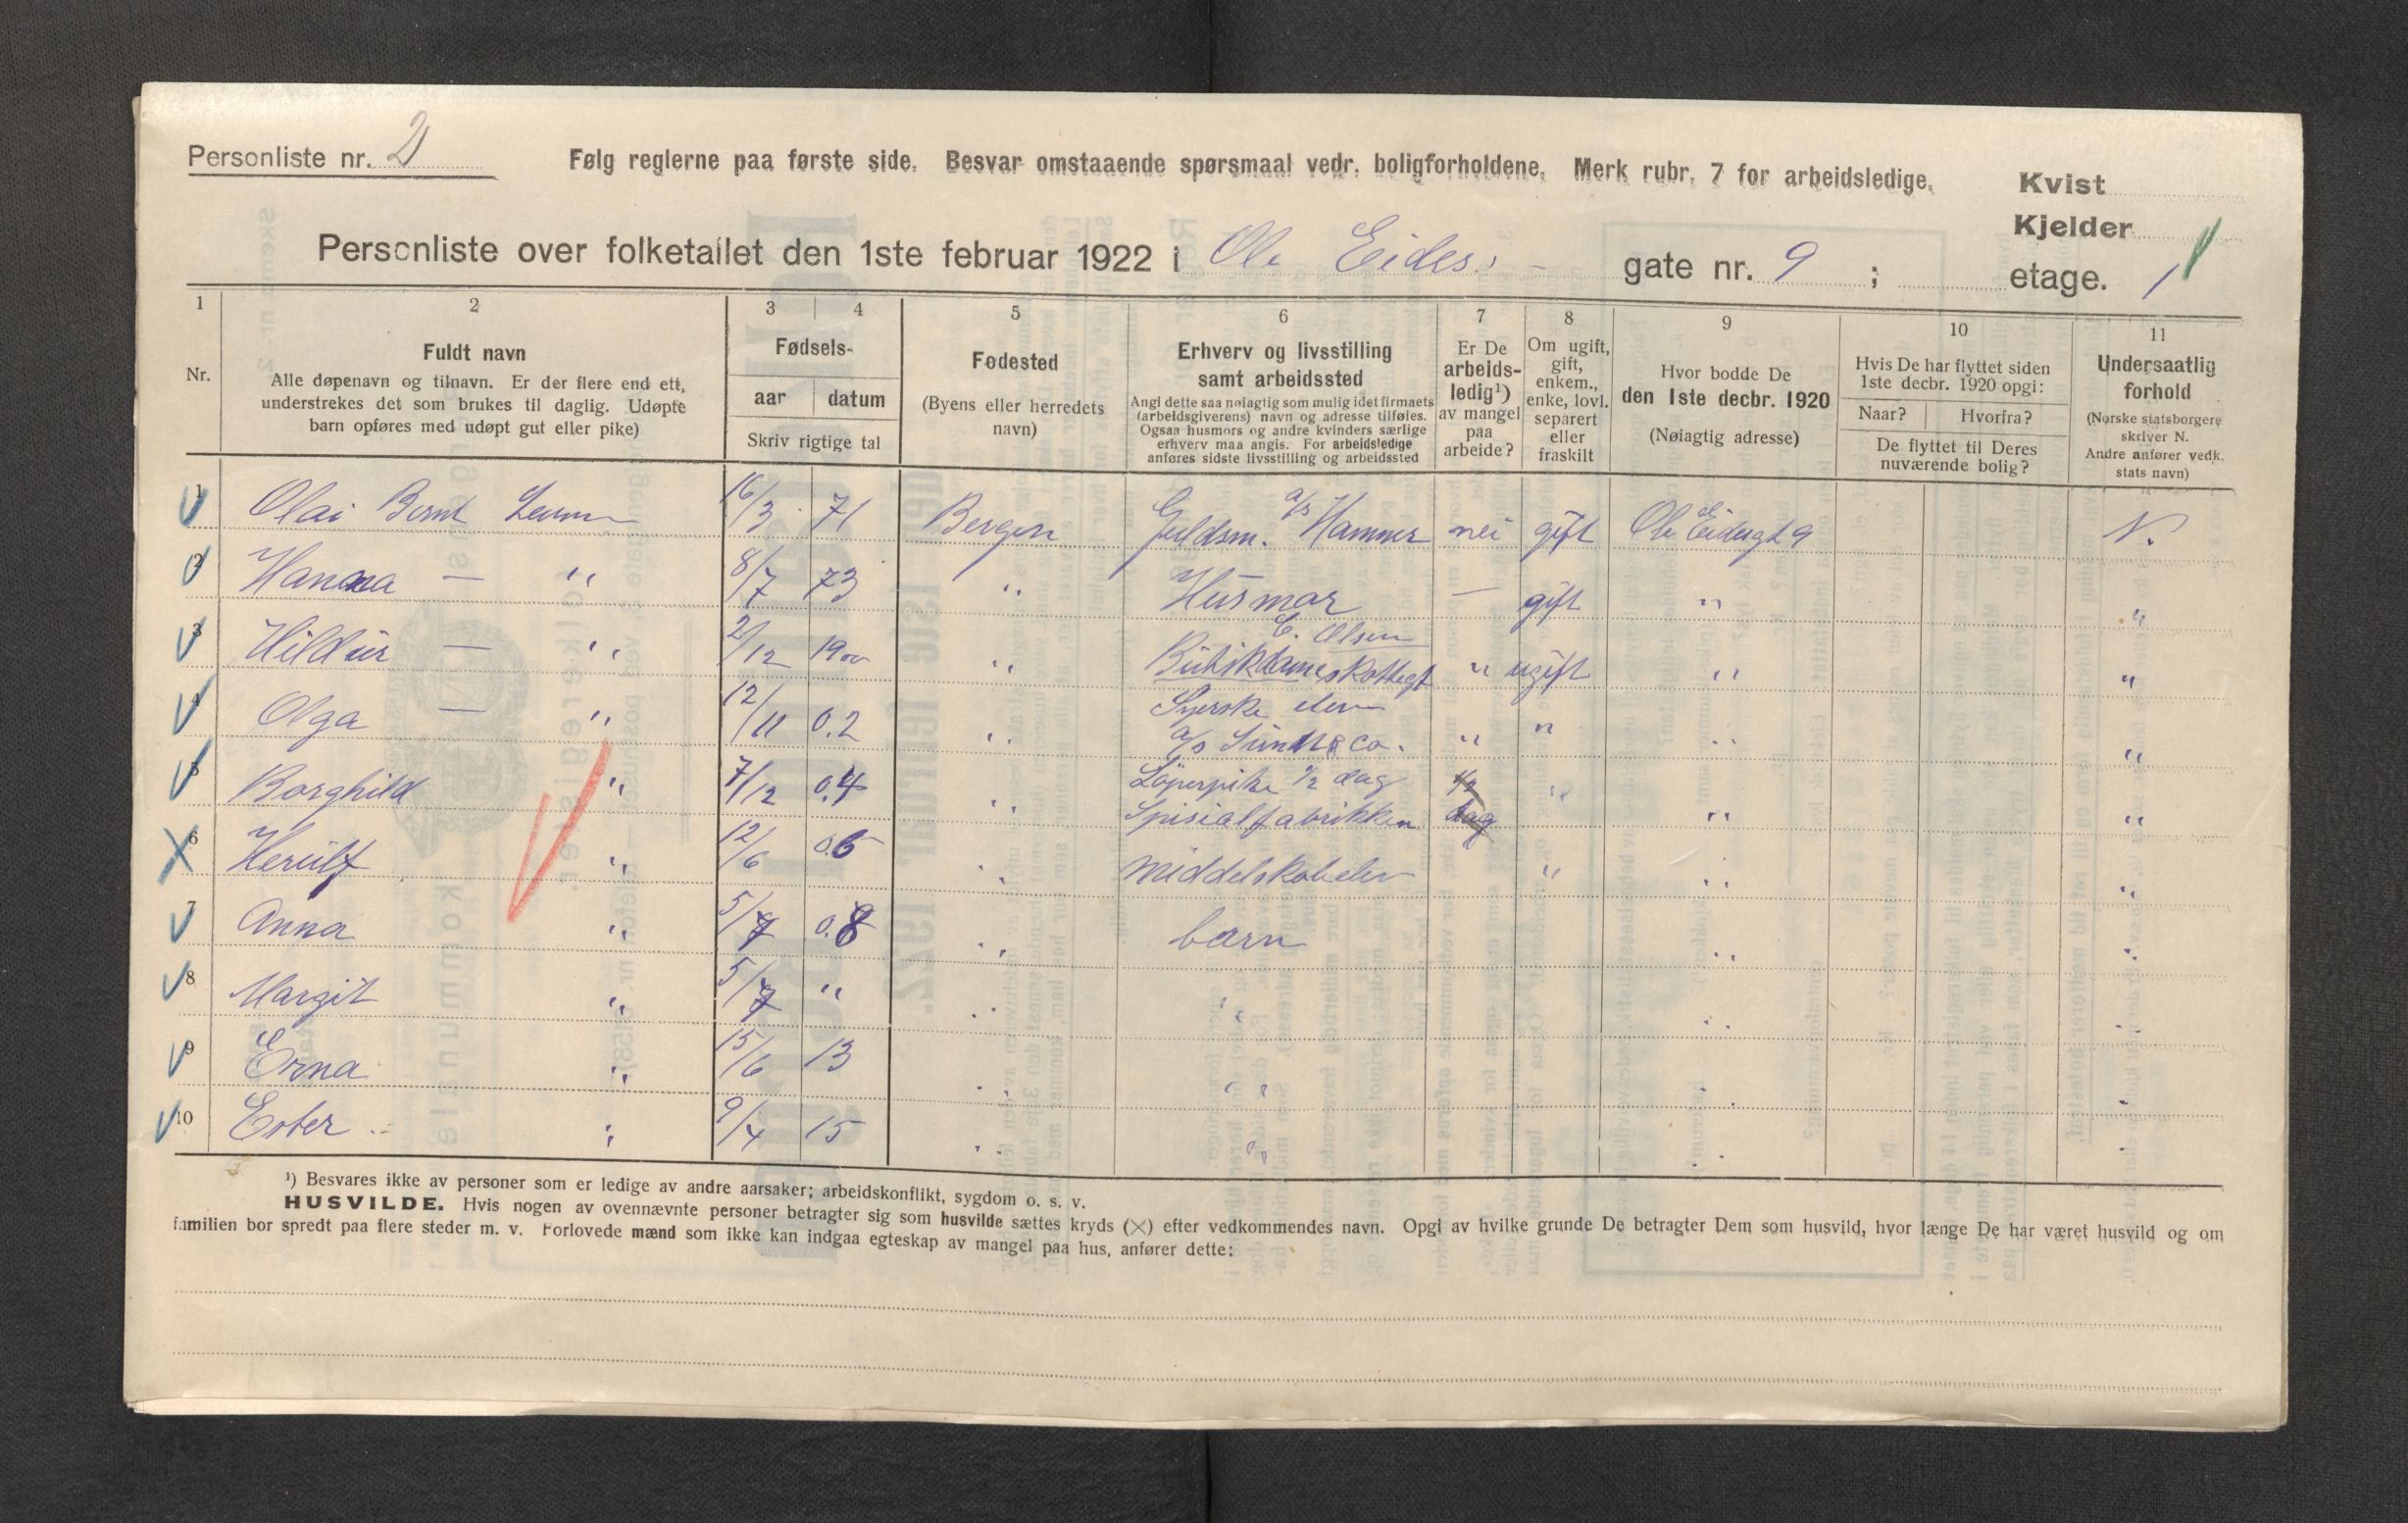 Personliste nr. 2
Følg reglerne paa første side. Besvar omstaaende spørsmaal vedr. boligforholdene. Merk rubr. 7 for arbeidsledige.
Kvist
Kjelder
Personliste over folketallet den 1ste februar 1922 i Ole Eides - gate nr. 9 ; etage. 1
1 2 3 4 5 6 7 8 9 10 11
Nr.
Fuldt navn
Alle døpenavn og tilnavn. Er der flere end ett,
understrekes det som brukes til daglig. Udøpte
barn opføres med udøpt gut eller pike)
Fødsels-
aar datum
Skriv rigtige tal
Fødested
(Byens eller herredets
navn)
Erhverv og livsstilling
samt arbeidssted
Angi dette saa nøiagtig som mulig idet firmaets
(arbeidsgiverens) navn og adresse tilføies.
Ogsaa husmors og andre kvinders særlige
erhverv maa angis. For arbeidsledige
anføres sidste livsstilling og arbeidssted
Er De
arbeids-
ledig¹)
av mangel
paa
arbeide?
Om ugift,
gift,
enkem.,
enke, lovl.
separert
eller
fraskilt
Hvor bodde De
den 1ste decbr. 1920
(Nøiagtig adresse)
Hvis De har flyttet siden
1ste decbr. 1920 opgi:
Naar? Hvorfra?
De flyttet til Deres
nuværende bolig?
Undersaatlig
forhold
(Norske statsborgere
skriver N.
Andre anfører vedk.
stats navn)
1 Olai Bernt 16/3 71 Bergen Guldsm. a/s Hammer nei gift Ole Eidesgt 9 N.
2 Hanna — " 8/7 73 " Husmor — gift " "
3 Hildur — " 2/12 1900 " C. Olsen
Butikdame " ugift " "
4 Olga — " 12/11 0.2 " Syerske elev
a/s Sundt & co. " " " "
5 Borghild " 7/12 0.4 " Løperpike 1/2 dag 1/2
Spisialfabrikken dag " " "
6 Herulf " 12/6 0.6 " Middelskolelev " " "
7 Anna " 5/7 0.8 " barn " "
8 Margit " 5/7 " " " " "
9 Erna " 15/6 13 " " " "
10 Ester " 9/4 15 " " " "
¹) Besvares ikke av personer som er ledige av andre aarsaker; arbeidskonflikt, sygdom o. s. v.
HUSVILDE. Hvis nogen av ovennævnte personer betragter sig som husvilde sættes kryds (×) efter vedkommendes navn. Opgi av hvilke grunde De betragter Dem som husvild, hvor længe De har været husvild og om
familien bor spredt paa flere steder m. v. Forlovede mænd som ikke kan indgaa egteskap av mangel paa hus, anfører dette: